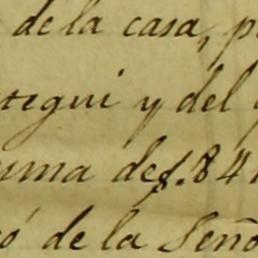 de la casa, p
tegui y del
uma de $.84
ó de la Seño